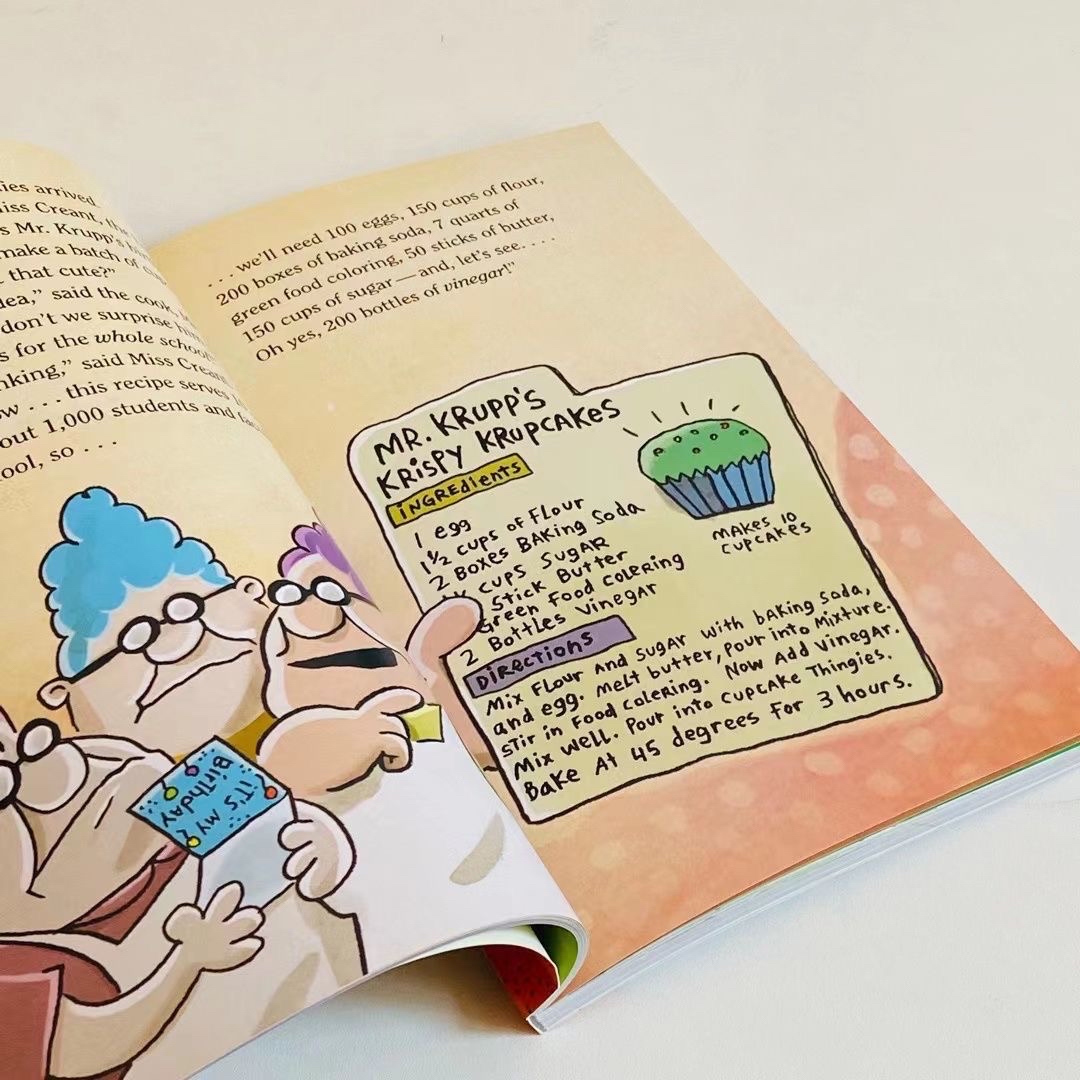 ies arrived
iss Creant,
s Mr. Krupp's
make a batch of
that cute?"
dea," said the cook,
don't we surprise
s for the whole school
nking," said Miss Creant
ow . . . this recipe serves
out 1,000 students and
ool, so . . .
IT'S MY
Birthday
. . . we'll need 100 eggs, 150 cups of flour,
200 boxes of baking soda, 7 quarts of
green food coloring, 50 sticks of butter,
150 cups of sugar—and, let's see. . . .
Oh yes, 200 bottles of vinegar!"
MR. KRUPP'S
KRiSPY KRUPCAKES
iNGREdients
1 egg
1 1/2 cups of FLOUR
2 BOXES BAKING Soda
CUPS SUGAR
Stick Butter
Green Food Colering
2 Bottles Vinegar
MAKES 10
CUPCAKES
DiRECtions
Mix FLOUR and SUGAR with baking Soda,
and egg. Melt butter, pour into Mixture.
Stir in Food Colering. Now Add Vinegar.
Mix well. Pour into CUPCAKE Thingies.
Bake At 45 degrees for 3 hours.